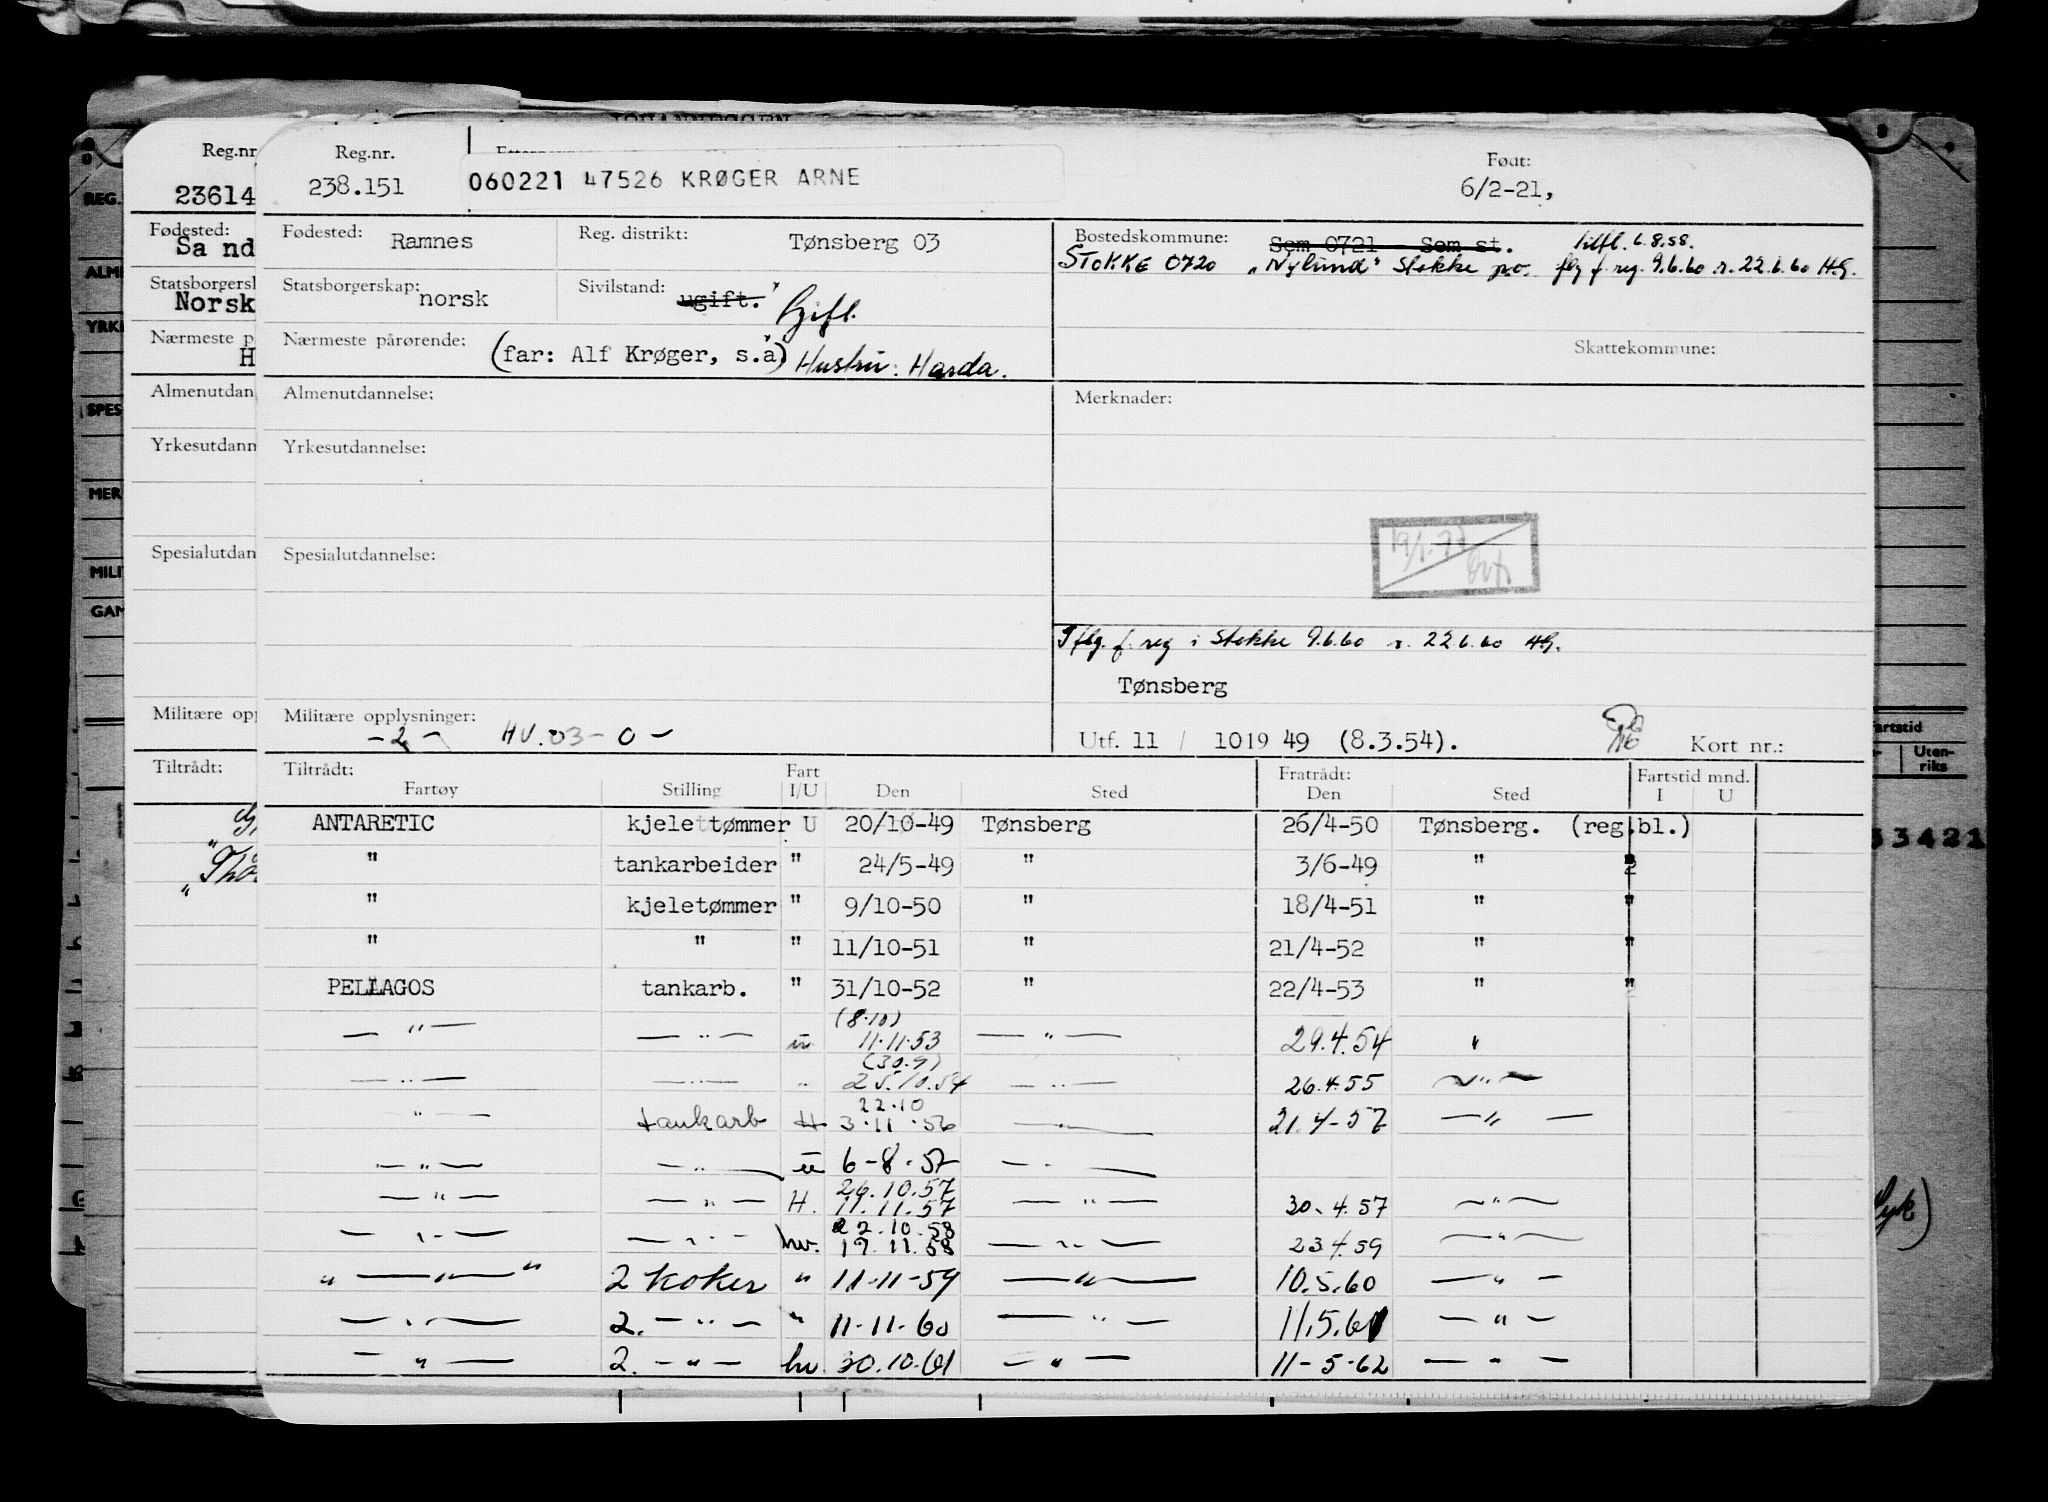 Reg.nr. 238.151 060221 47526 KRØGER ARNE Født: 6/2-21,
Fødested: Ramnes Reg. distrikt: Tønsberg 03 Bostedskommune: Sem 0721 - Sem st. tilfl. 6.8.58.
STOKKE 0720 "Nylund" Stokke p.o. flg f. reg. 9.6.60 r. 22.6.60 H.G.
Statsborgerskap: norsk Sivilstand: ugift. Gift.
Nærmeste pårørende: (far: Alf Krøger, s.å) Hustru: Harda. Skattekommune:
Almenutdannelse: Merknader:
Yrkesutdannelse:
Spesialutdannelse:
Iflg. f. reg i Stokke 9.6.60 r. 22.6.60 H.G.
Tønsberg
Militære opplysninger: -2- HV.03-0- Utf. 11 / 1019 49 (8.3.54). Kort nr.:
Tiltrådt: Fart Fratrådt: Fartstid mnd.
Fartøy Stilling I/U Den Sted Den Sted I U
ANTARETIC kjelettømmer U 20/10-49 Tønsberg 26/4-50 Tønsberg. (reg.bl.)
" tankarbeider " 24/5-49 " 3/6-49 " "
" kjeletømmer " 9/10-50 " 18/4-51 " "
" " " 11/10-51 " 21/4-52 " "
PELLAGOS tankarb. " 31/10-52 " 22/4-53 " "
(8.10)
— " — — " — u 11.11.53 — " — 29.4.54 "
(30.9)
— " — — " — " 25.10.54 — " — 26.4.55 — " —
22.10
— " — tankarb H 3.11.56 — " — 21.4-57 — " —
— " — — " — u 6-8.57 — " —
26.10.57
— " — — " — H. 11.11.57 — " — 30.4.57 — " —
22.10.58
— " — — " — hv. 17.11.58 — " — 23.4.59 — " —
" — " — " 2 koker " 11-11-59 — " — 10.5.60 — " —
— " — 2. — " — " 11-11-60 — " — 11.5.61 — " —
— " — 2. — " — hv. 30.10.61 — " — 11-5-62 — " —
Reg.nr
23614
Fødested:
Sand
Statsborgersk
Norsk
Nærmeste p
H
Almenutdan
Yrkesutdann
Spesialutdan
Militære opp
Tiltrådt:
REG.
ALM
YRK
SPES
MER
MILI
GAN
artstid
Uten-
riks
33421